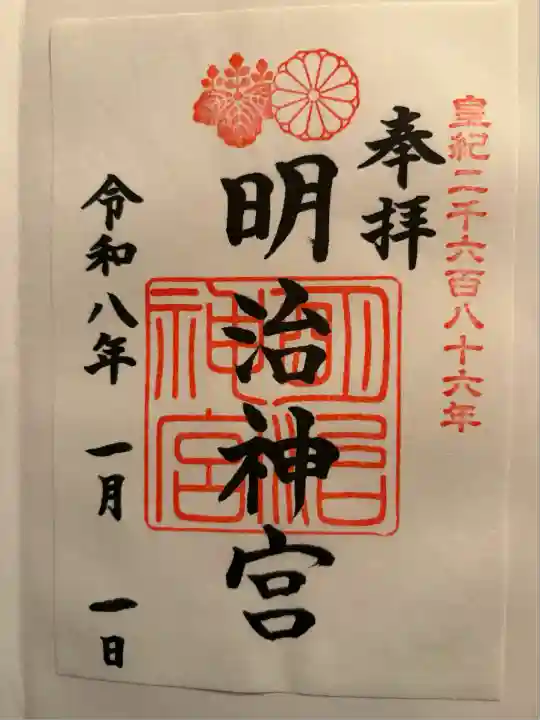 皇紀二千六百八十六年
奉拝
明治神宮
明治神宮
令和八年 一月 一日